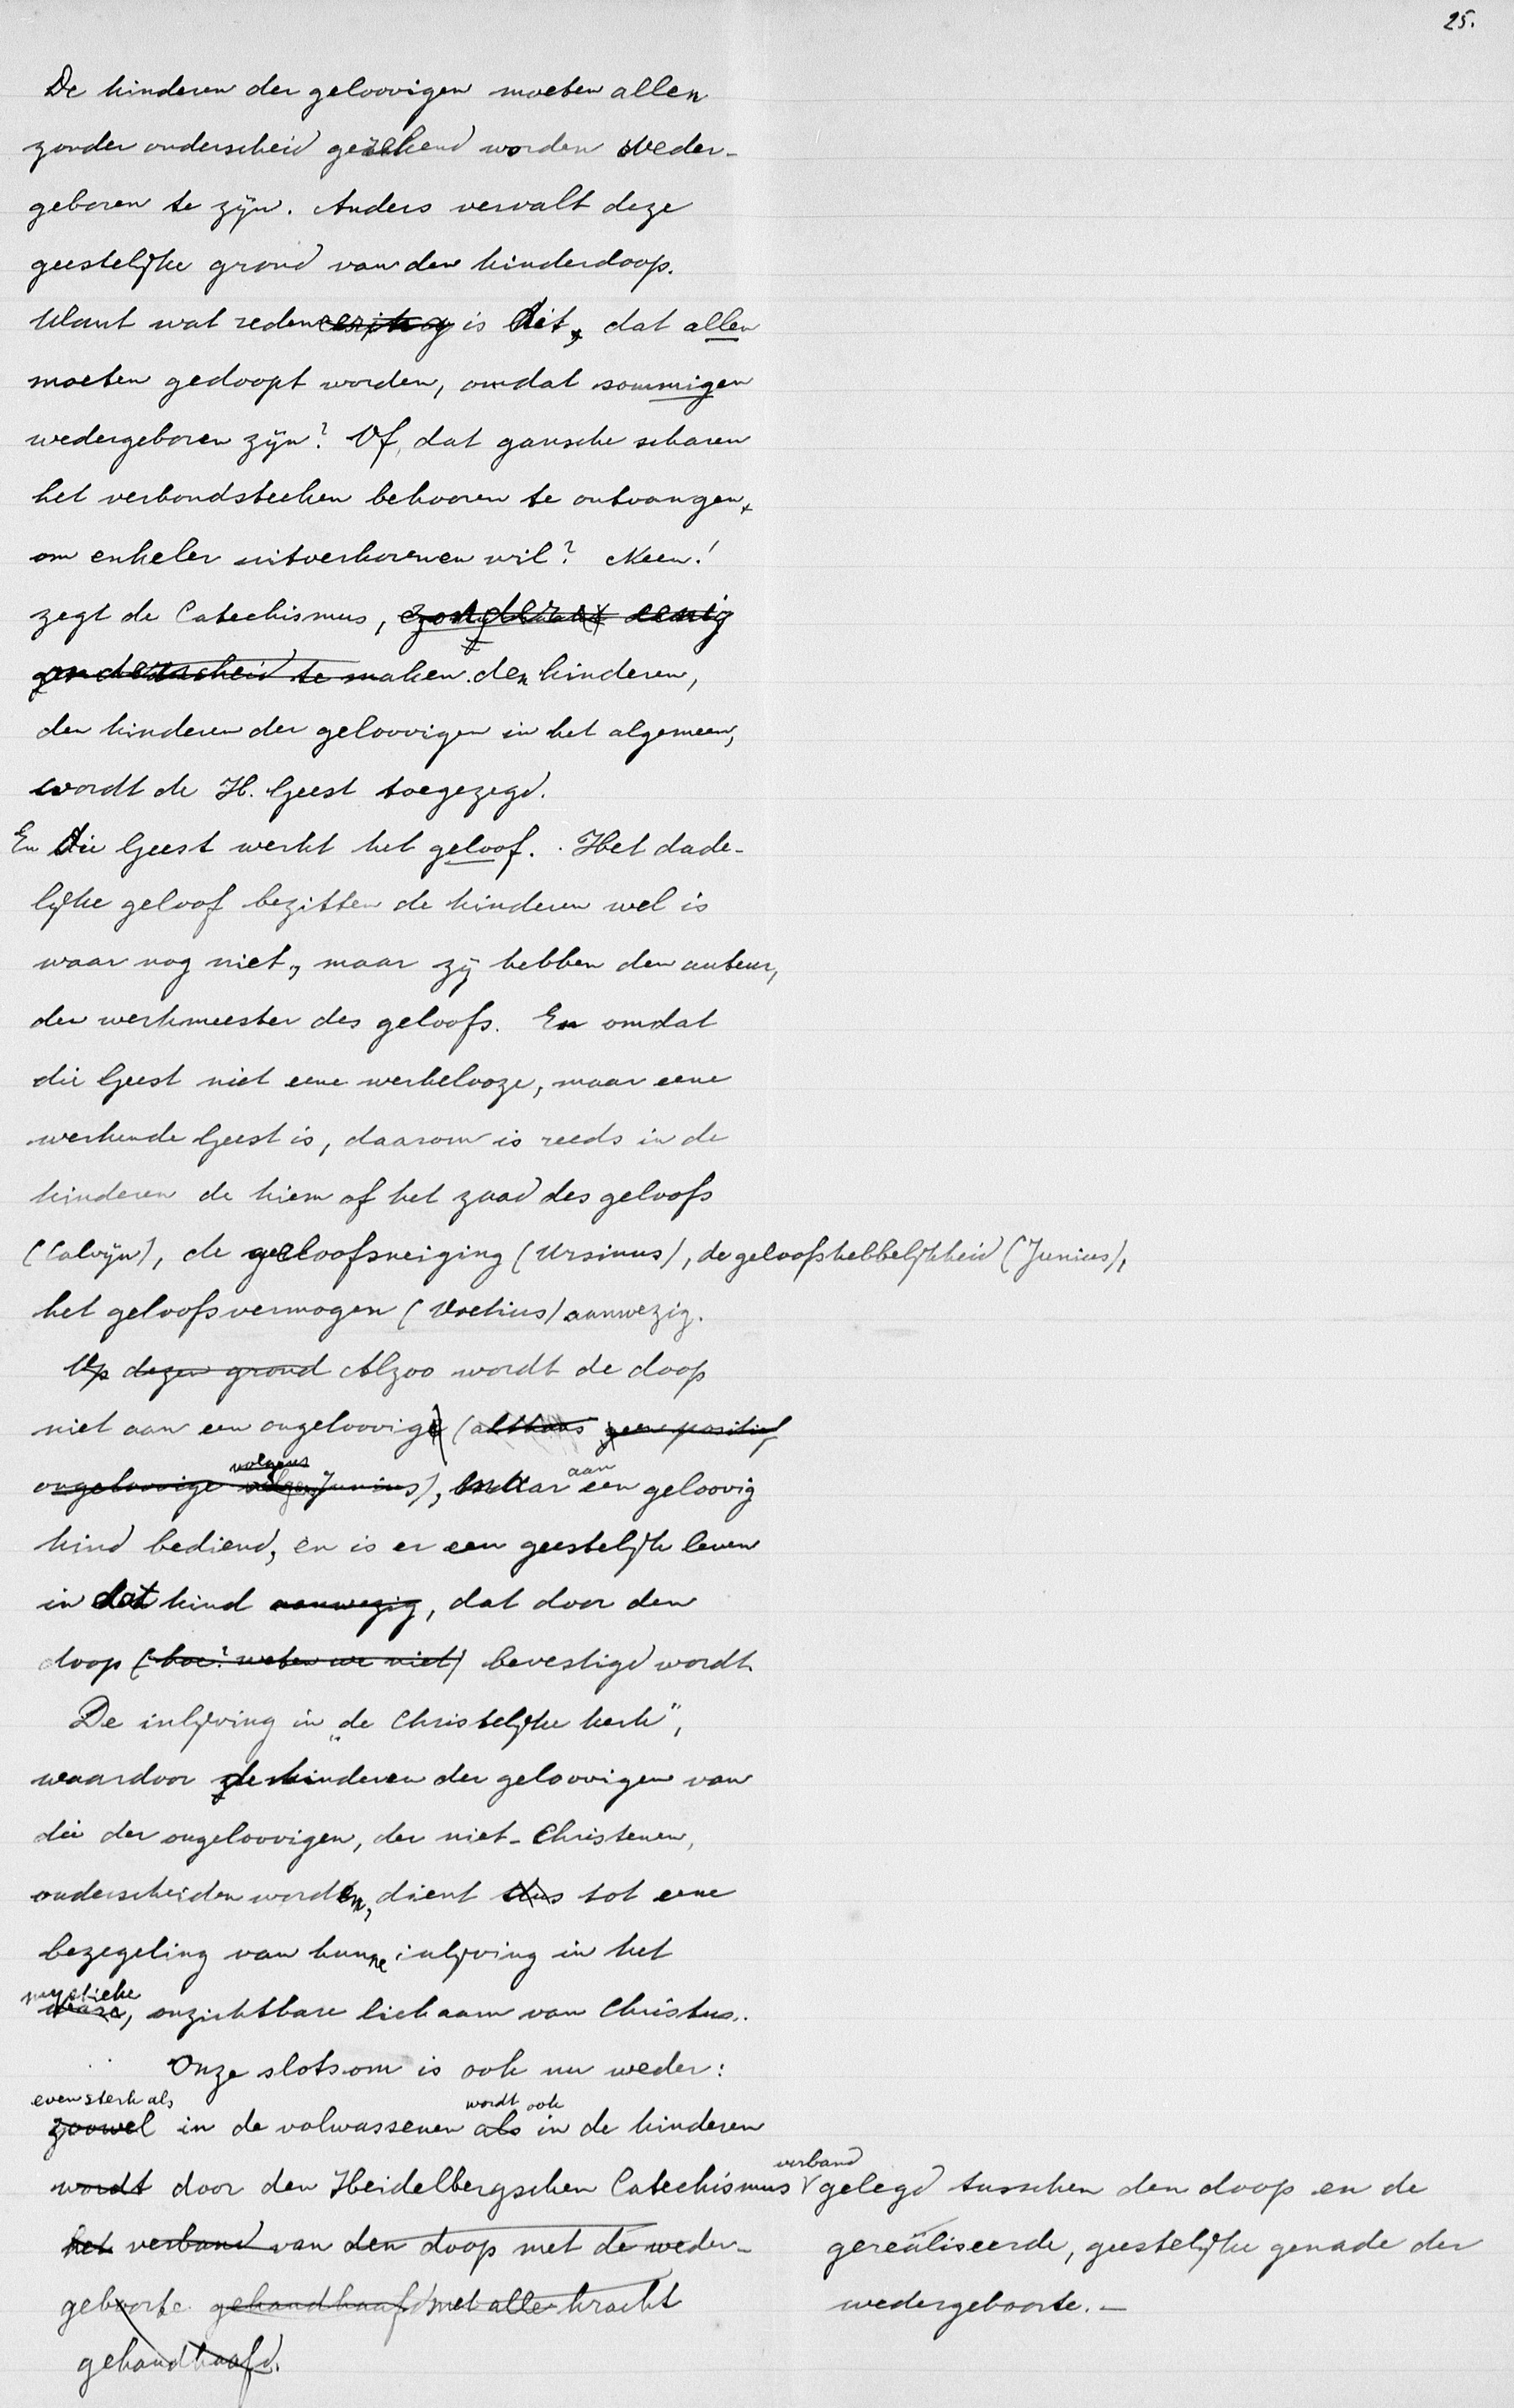 25.
De kinderen der geloovigen moeten allen
zonder onderscheid gerekend worden weder-
geboren te zijn. Anders vervalt deze
geestelijke grond van den kinderdoop.
Want wat reden is dit, dat allen
moeten gedoopt worden, omdat sommigen
wedergeboren zijn? Of, dat gansche scharen
het verbondsteeken behooren te ontvangen,
om enkeler uitverkorenen wil? Neen!
zegt de Catechismus, zonder eenig
onderscheid te maken den kinderen,
den kinderen der geloovigen in het algemeen,
wordt de H. Geest toegezegd.
En die Geest werkt het geloof. Het dade-
lijke geloof bezitten de kinderen wel is
waar nog niet, maar zij hebben den auteur,
den werkmeester des geloofs. En omdat
die Geest niet eene werkelooze, maar eene
werkende Geest is, daarom is reeds in de
kinderen de kiem of het zaad des geloofs
(Calvijn), de geloofsneiging (Ursinus), de geloofshebbelijkheid (Junius),
het geloofsvermogen (Voetius) aanwezig.
Op dezen grond Alzoo wordt de doop
niet aan een ongeloovige (althans geen positief
volgens aan
ongeloovige Junius), maar een geloovig
kind bediend, en is er een geestelijk leven
in dat kind aanwezig, dat door den
doop (hoe? weten we niet) bevestigd wordt.
De inlijving in „de Christelijke kerk",
waardoor de kinderen der geloovigen van
die der ongeloovigen, der niet-Christenen,
onderscheiden worden, dient dus tot eene
bezegeling van hunne inlijving in het
mystieke
ware, onzichtbare lichaam van Christus.
Onze slotsom is ook nu weder:
even sterk als wordt ook
zoowel in de volwassenen als in de kinderen
verband
wordt door den Heidelbergschen Catechismus gelegd tusschen den doop en de
het verband van den doop met de weder-
geboorte gehandhaafd met alle kracht
gehandhaafd.
gerealiseerde, geestelijke genade der
wedergeboorte.-